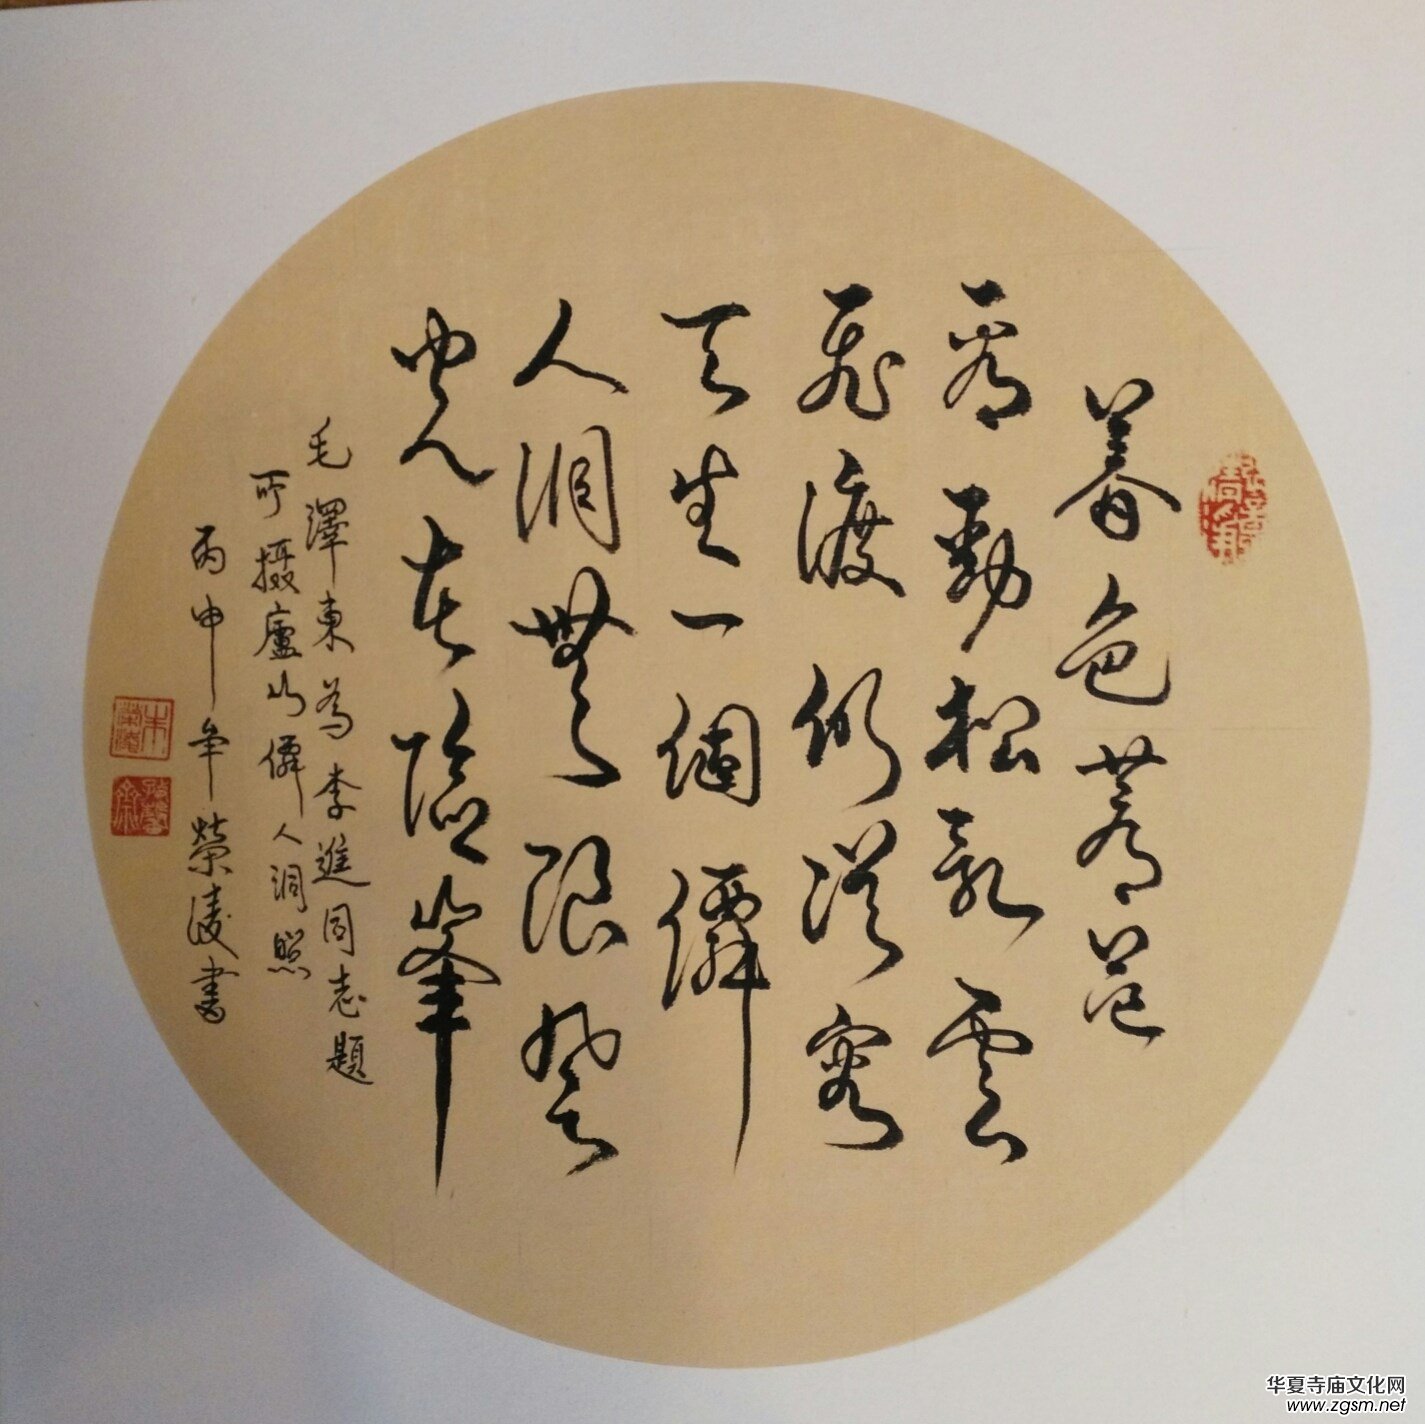 暮色蒼茫
看勁松亂雲
飛渡仍從容
天生一個僊
人洞無限風
光在險峯
毛澤東為李進同志題
所摄廬山僊人洞照
丙申年榮書
华夏寺庙文化网
www.zgsm.net